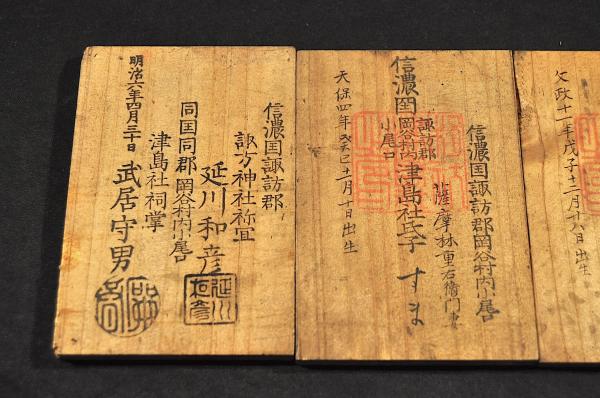 文政十一年戊子十二月廿八日出生
信濃囯諏訪郡岡谷村内小尾口
薩摩林重右衛門妻
信濃囯
諏訪郡
岡谷村内
小尾口
津島社氏子 すま
天保四年癸巳十一月十日出生
信濃囯諏訪郡
諏方神社祢宜
延川和彦
同囯同郡岡谷村内小尾口
津島社祠掌
武居守男
明治六年四月三十日